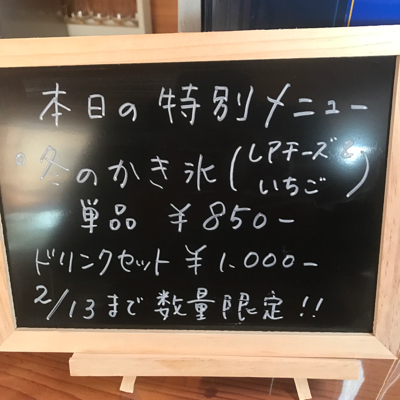 本日の特別メニュー
・冬のかき氷(レアチーズ&
いちご)
単品 ¥850-
ドリンクセット ¥1.000-
2/13まで数量限定!!